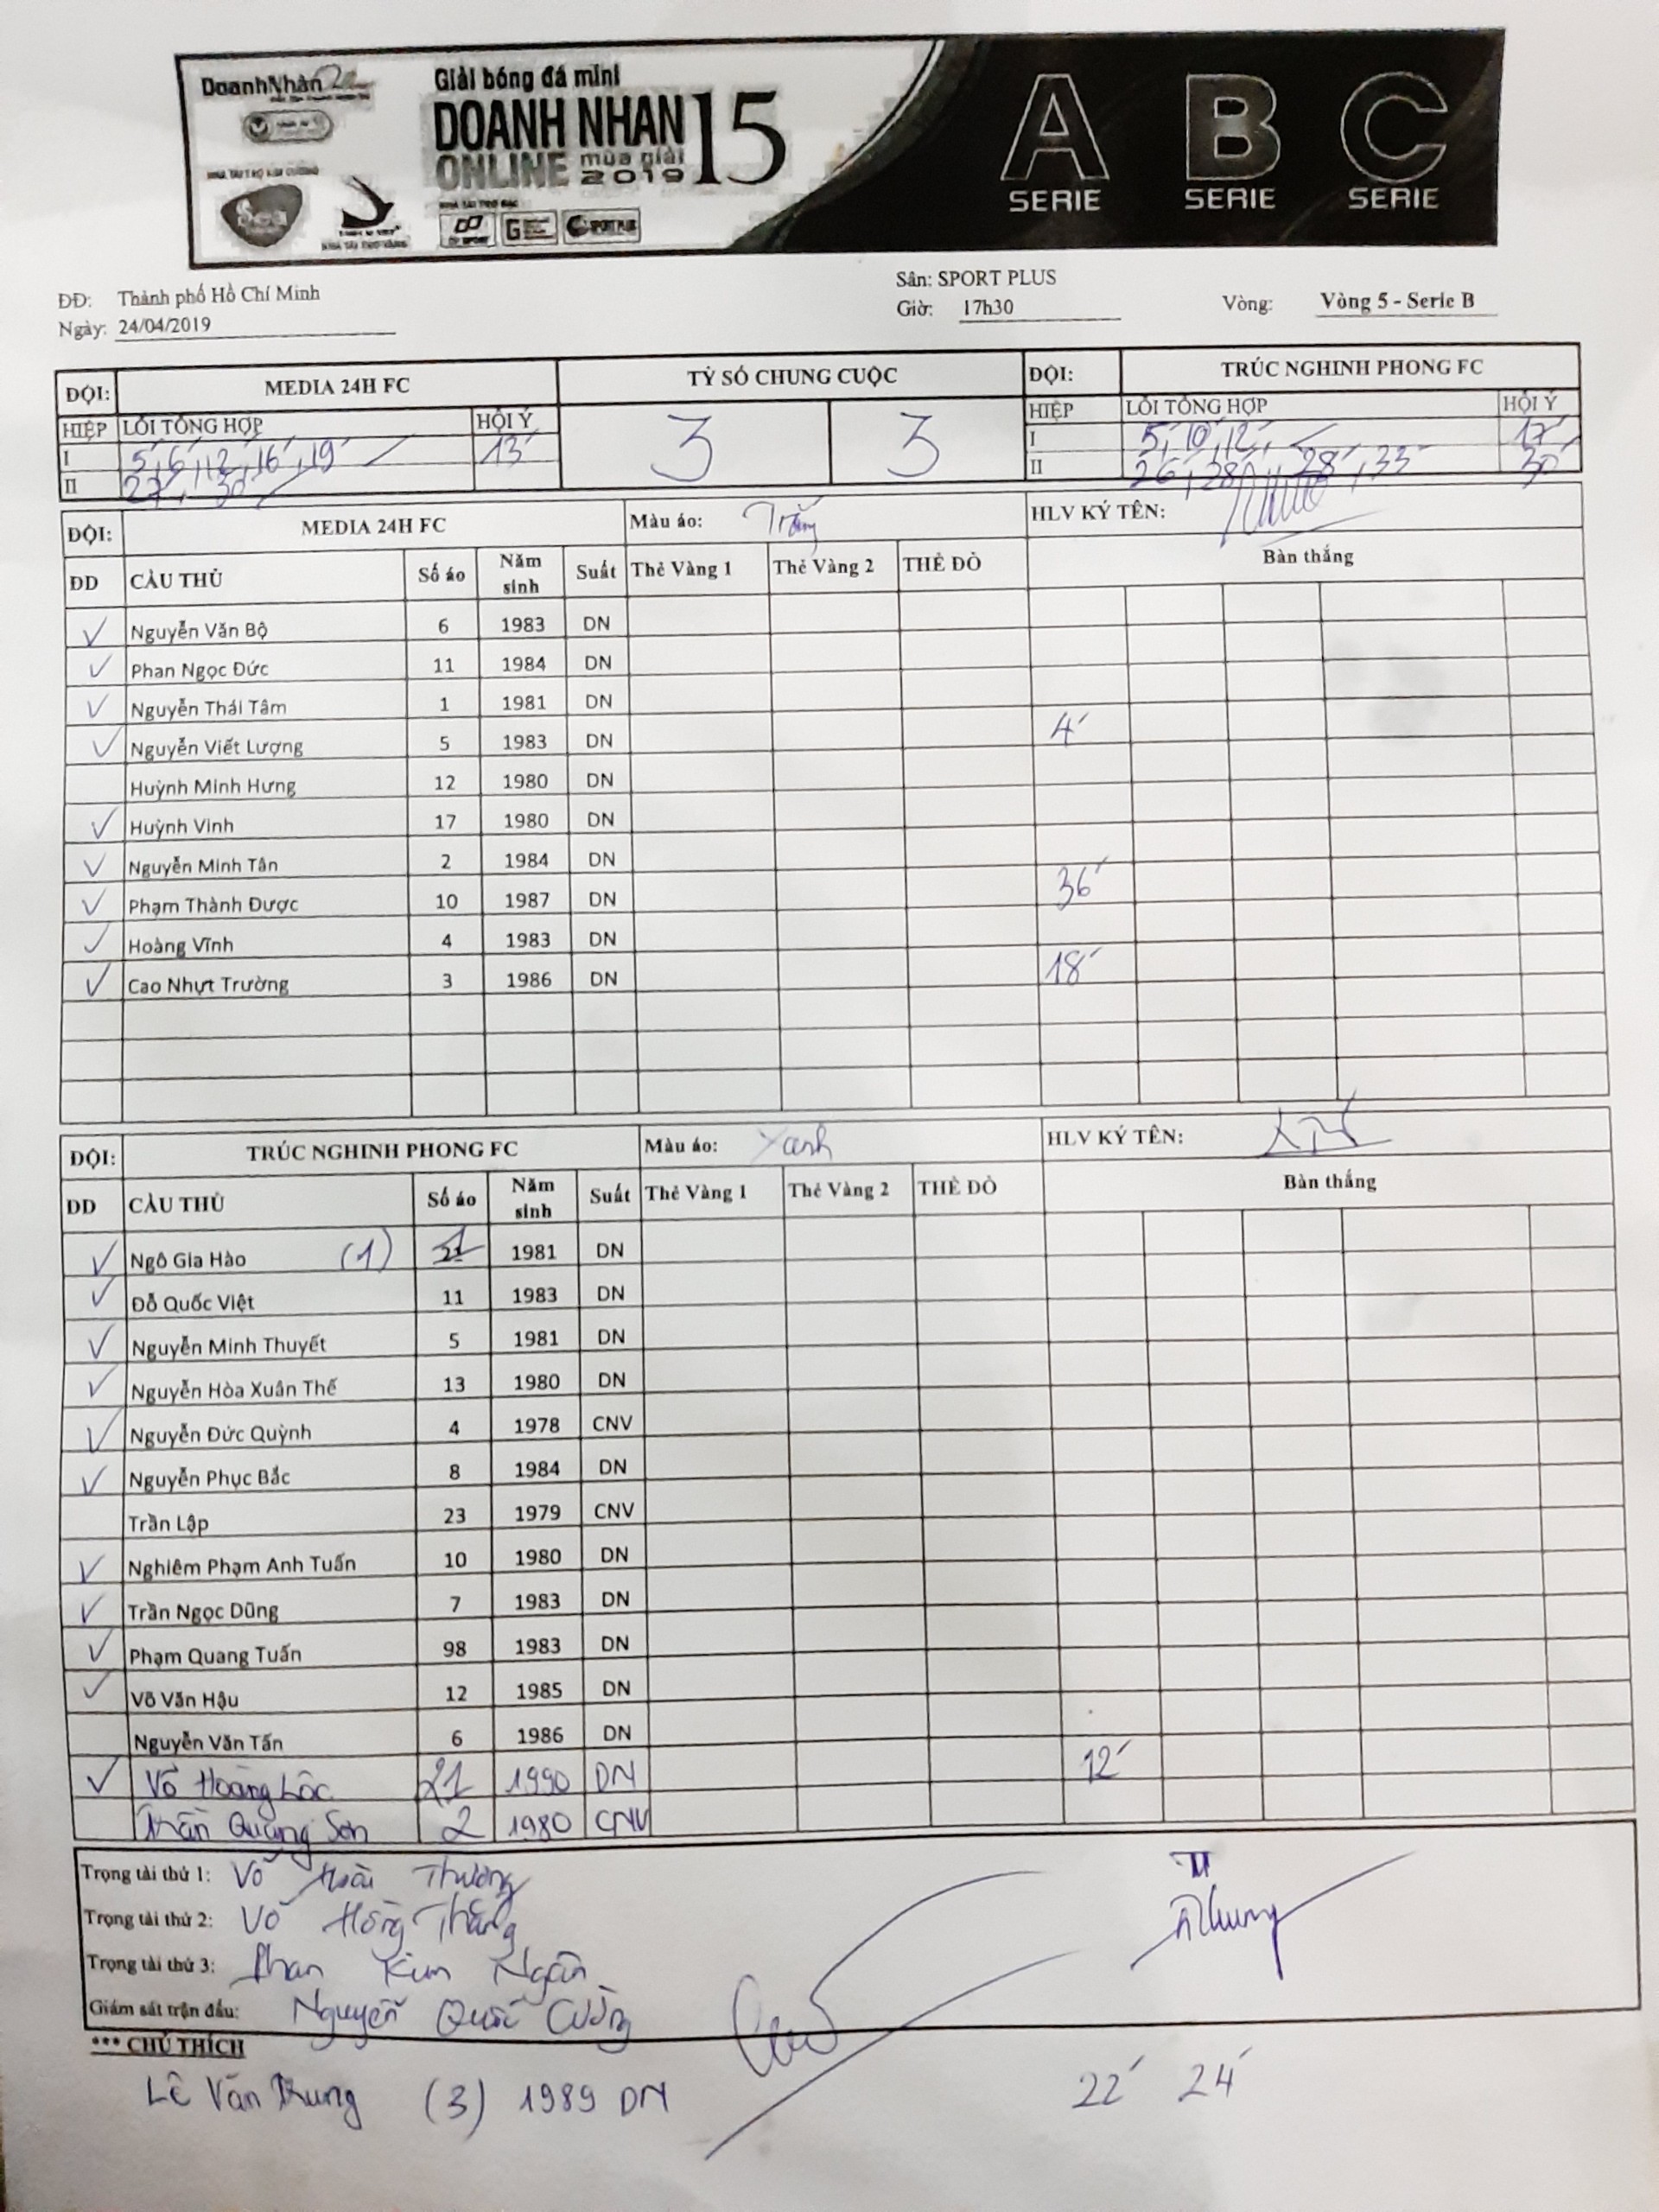 DoanhNhân
Giải bóng đá mini
DOANH NHAN 15
ONLINE mùa giải 2019
Sea
SPORT PLUS
A SERIE B SERIE C SERIE
ĐĐ: Thành phố Hồ Chí Minh Sân: SPORT PLUS
Ngày: 24/04/2019 Giờ: 17h30 Vòng: Vòng 5 - Serie B
ĐỘI: MEDIA 24H FC TỶ SỐ CHUNG CUỘC ĐỘI: TRÚC NGHINH PHONG FC
HIỆP LỖI TỔNG HỢP HỘI Ý 3 3 HIỆP LỖI TỔNG HỢP HỘI Ý
I 5', 6', 12', 16', 19' 13' I 5', 10', 12', 17'
II 27', 30' II 26', 28', 28', 33' 30'
ĐỘI: MEDIA 24H FC Màu áo: Trắng HLV KÝ TÊN:
ĐD CẦU THỦ Số áo Năm sinh Suất Thẻ Vàng 1 Thẻ Vàng 2 THẺ ĐỎ Bàn thắng
✓ Nguyễn Văn Bộ 6 1983 DN
✓ Phan Ngọc Đức 11 1984 DN
✓ Nguyễn Thái Tâm 1 1981 DN
✓ Nguyễn Viết Lượng 5 1983 DN 4'
Huỳnh Minh Hưng 12 1980 DN
✓ Huỳnh Vinh 17 1980 DN
✓ Nguyễn Minh Tân 2 1984 DN
✓ Phạm Thành Được 10 1987 DN 36'
✓ Hoàng Vĩnh 4 1983 DN
✓ Cao Nhựt Trường 3 1986 DN 18'
ĐỘI: TRÚC NGHINH PHONG FC Màu áo: Xanh HLV KÝ TÊN:
ĐD CẦU THỦ Số áo Năm sinh Suất Thẻ Vàng 1 Thẻ Vàng 2 THẺ ĐỎ Bàn thắng
✓ Ngô Gia Hào (1) 21 1981 DN
✓ Đỗ Quốc Việt 11 1983 DN
✓ Nguyễn Minh Thuyết 5 1981 DN
✓ Nguyễn Hòa Xuân Thế 13 1980 DN
✓ Nguyễn Đức Quỳnh 4 1978 CNV
✓ Nguyễn Phục Bắc 8 1984 DN
Trần Lập 23 1979 CNV
✓ Nghiêm Phạm Anh Tuấn 10 1980 DN
✓ Trần Ngọc Dũng 7 1983 DN
✓ Phạm Quang Tuấn 98 1983 DN
✓ Võ Văn Hậu 12 1985 DN
Nguyễn Văn Tấn 6 1986 DN
✓ Võ Hoàng Lộc 21 1990 DN 12'
Trần Quang Sơn 2 1980 CNV
Trọng tài thứ 1: Võ Hoài Thương
Trọng tài thứ 2: Võ Hồng Thắng
Trọng tài thứ 3: Phan Kim Ngân
Giám sát trận đấu: Nguyễn Quốc Cường
*** CHÚ THÍCH
Lê Văn Trung (3) 1989 DN 22' 24'